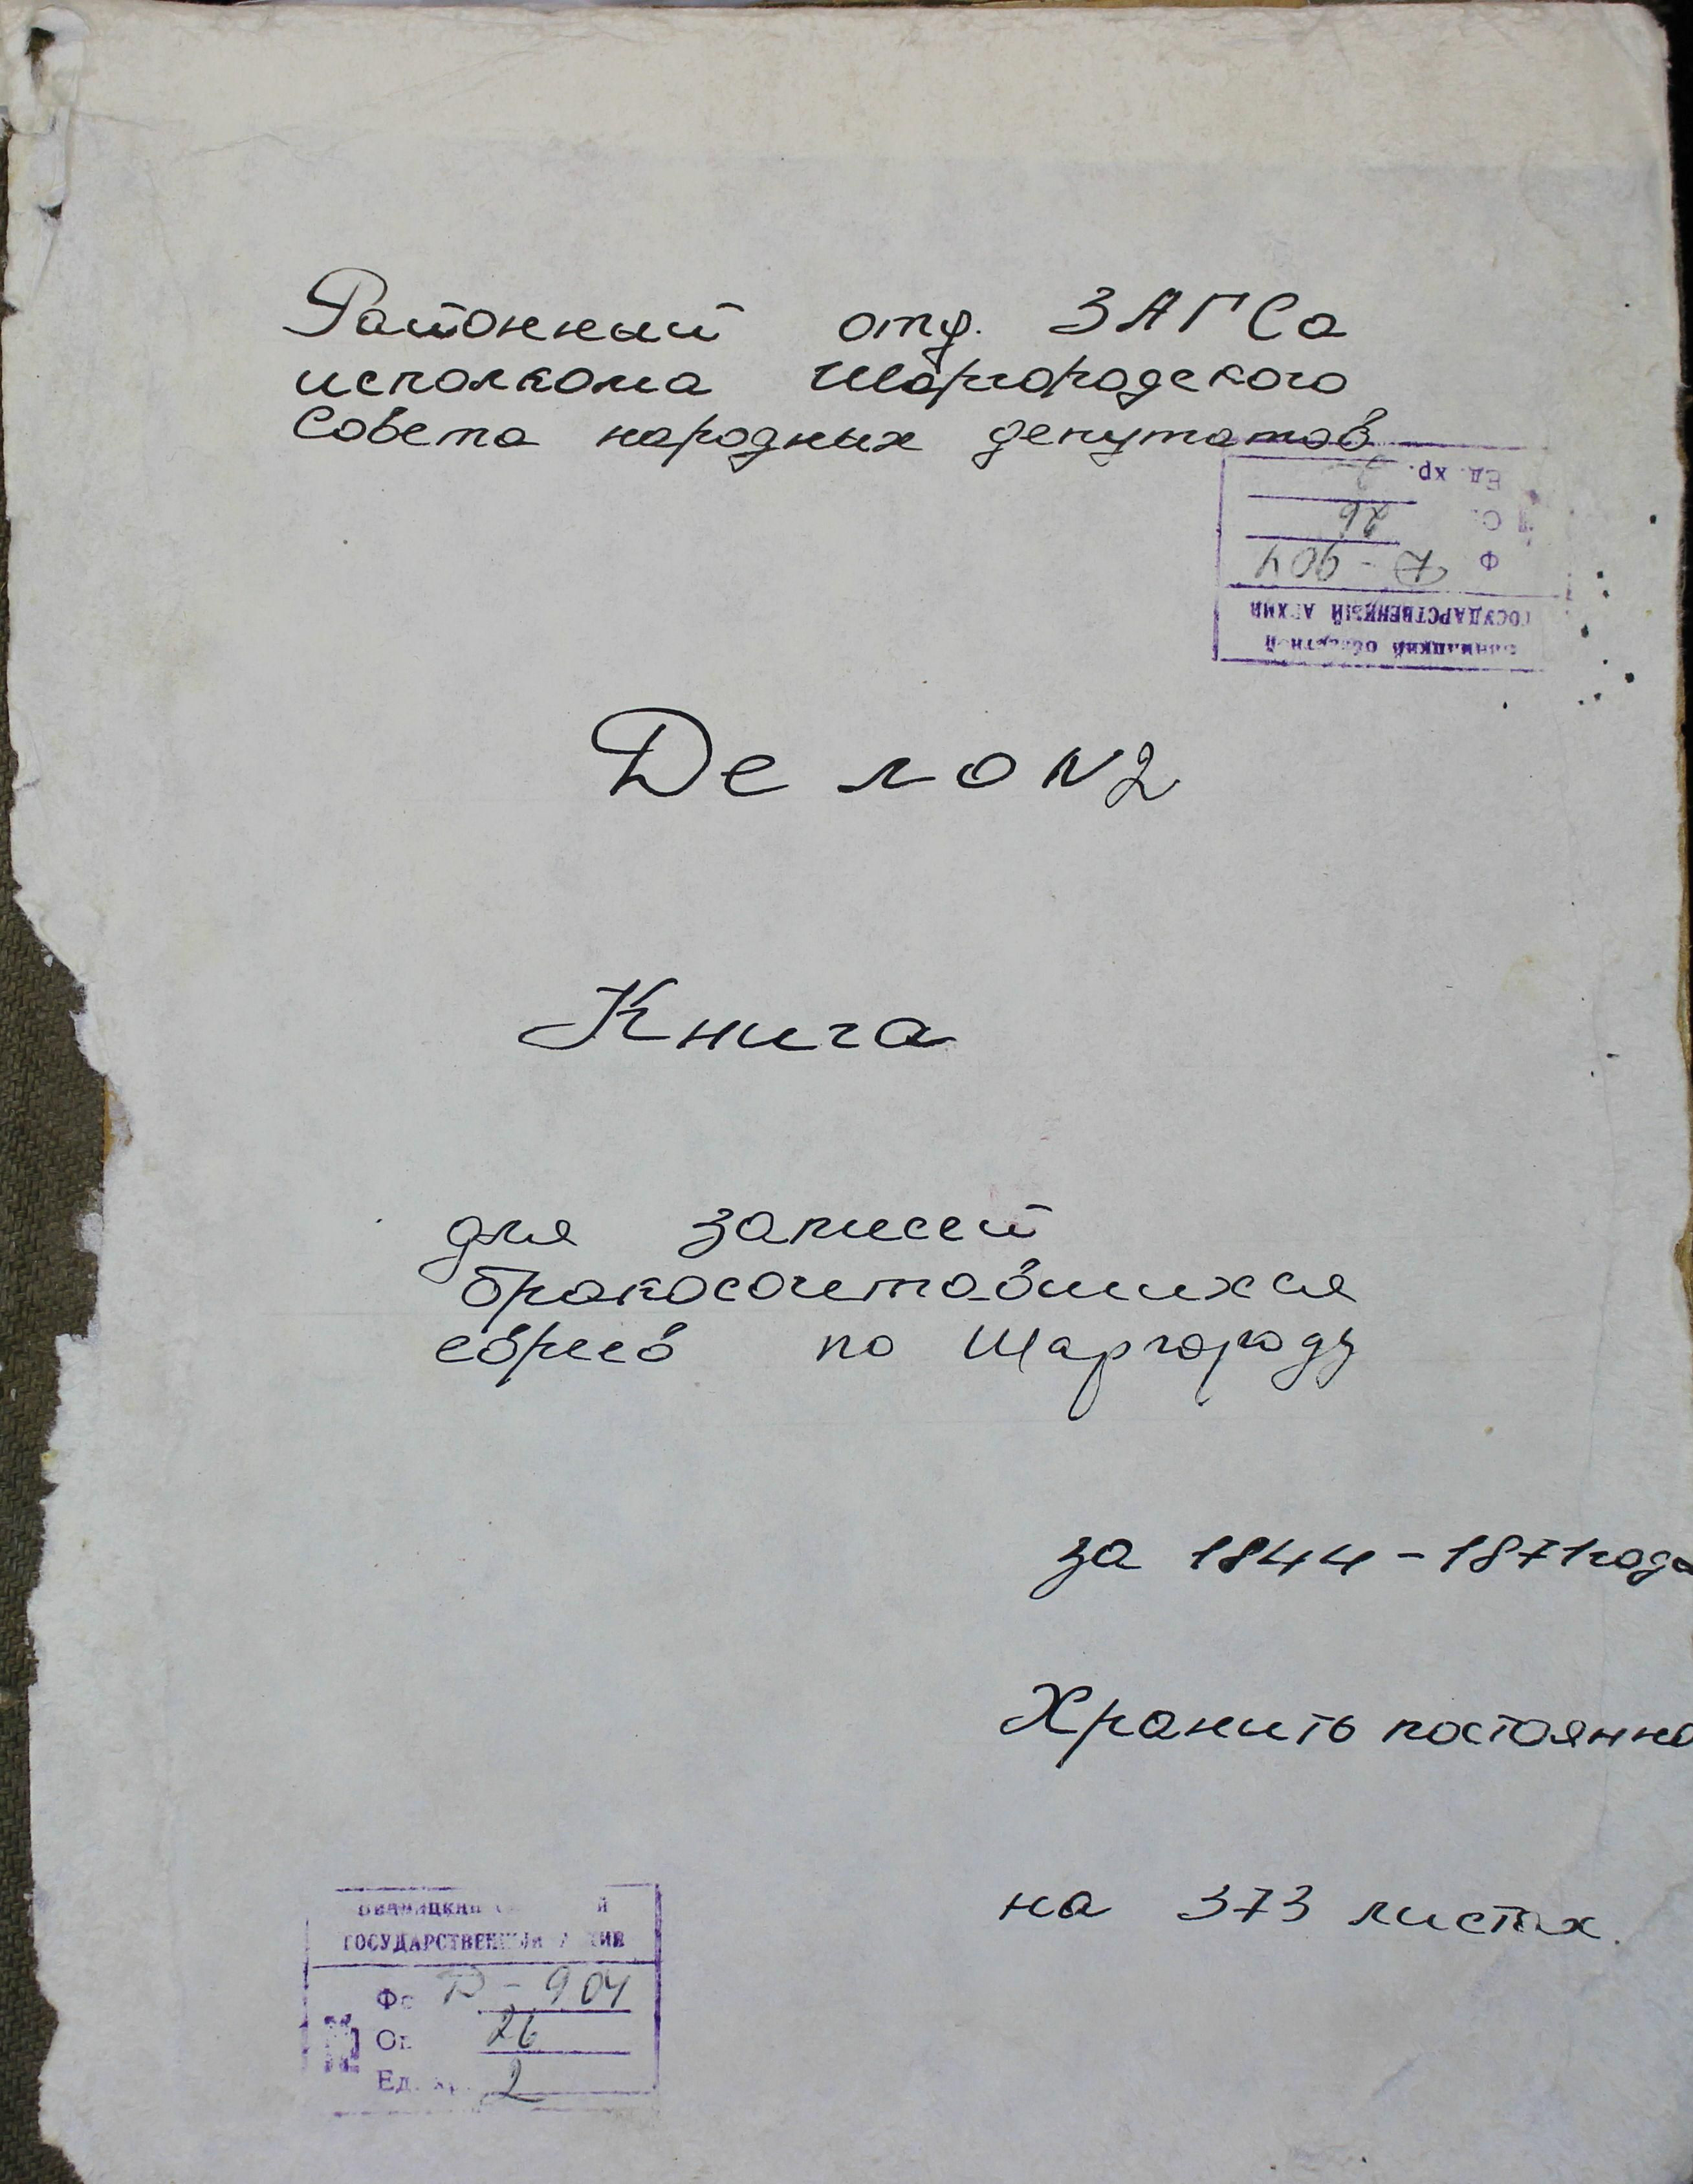 Районный отд. ЗАГСа
исполкома Шаргородского
Совета народных депутатов
Ед. хр. 2
26
Ф Р-904
ГОСУДАРСТВЕННЫЙ АРХИВ
Дело N2
Книга
для записей
бракосочетавшихся
евреев по Шаргороду
за 1844-1871 года
Хранить постоянно
на 373 листах.
ГОСУДАРСТВЕННЫЙ АРХИВ
Фо Р-904
Оп 26
Ед. хр. 2